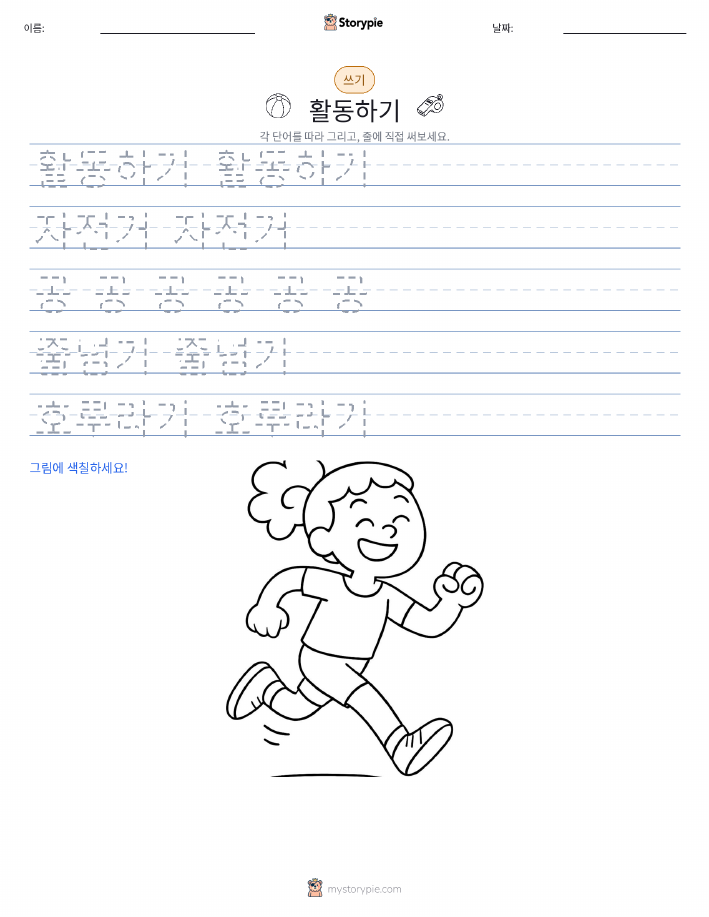 이름:
Storypie
날짜:
쓰기
활동하기
각 단어를 따라 그리고, 줄에 직접 써보세요.
활동하기 활동하기
자전거 자전거
공 공 공 공 공 공
줄넘기 줄넘기
호루라기 호루라기
그림에 색칠하세요!
mystorypie.com